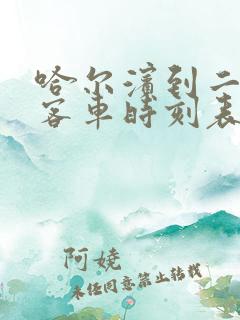 哈尔滨到二
客车时刻表
阿娆
未经同意禁止转载